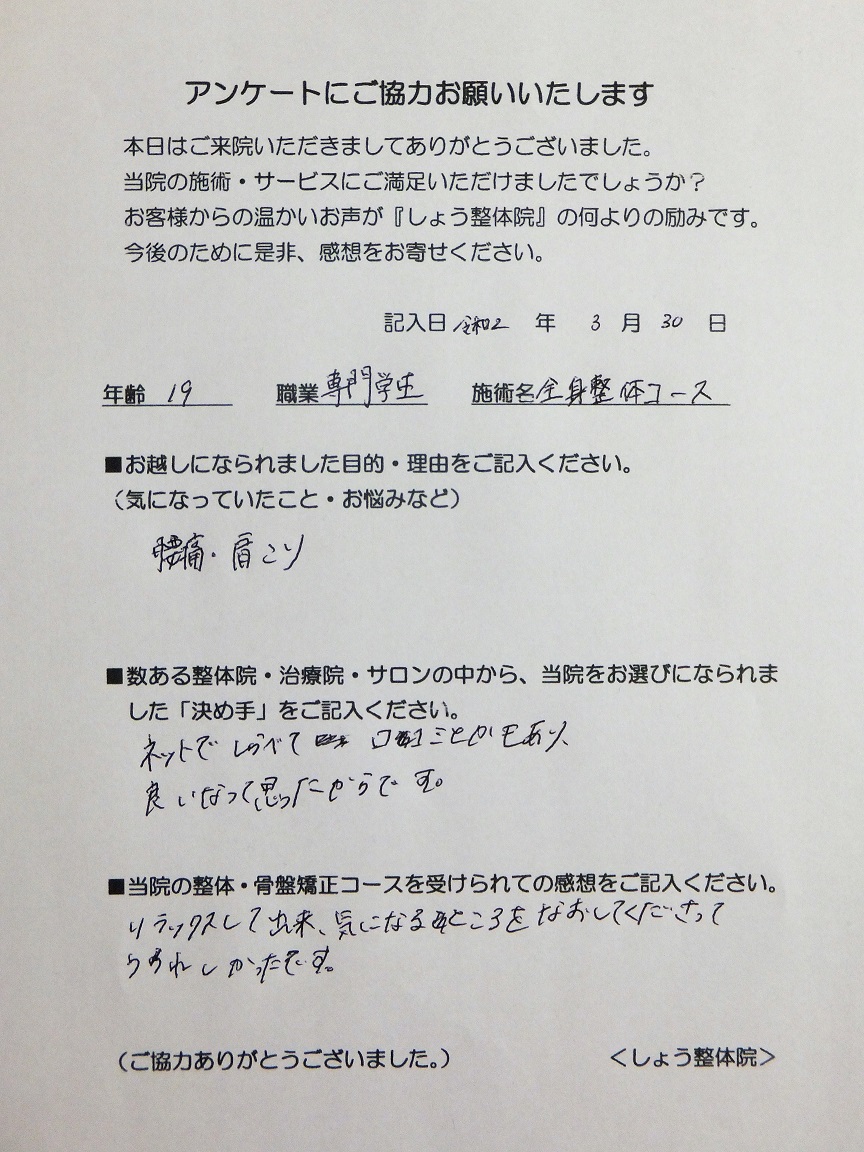 アンケートにご協力お願いいたします
本日はご来院いただきましてありがとうございました。
当院の施術・サービスにご満足いただけましたでしょうか？
お客様からの温かいお声が『しょう整体院』の何よりの励みです。
今後のために是非、感想をお寄せください。
記入日 令和2 年 3 月 30 日
年齢 19 職業 専門学生 施術名 全身整体コース
■お越しになられました目的・理由をご記入ください。
（気になっていたこと・お悩みなど）
腰痛・肩こり
■数ある整体院・治療院・サロンの中から、当院をお選びになられま
した「決め手」をご記入ください。
ネットでしらべて 口コミとかもあり、
良いなって思ったからです。
■当院の整体・骨盤矯正コースを受けられての感想をご記入ください。
リラックスして出来、気になるところをなおしてくださって
うれしかったです。
（ご協力ありがとうございました。） ＜しょう整体院＞